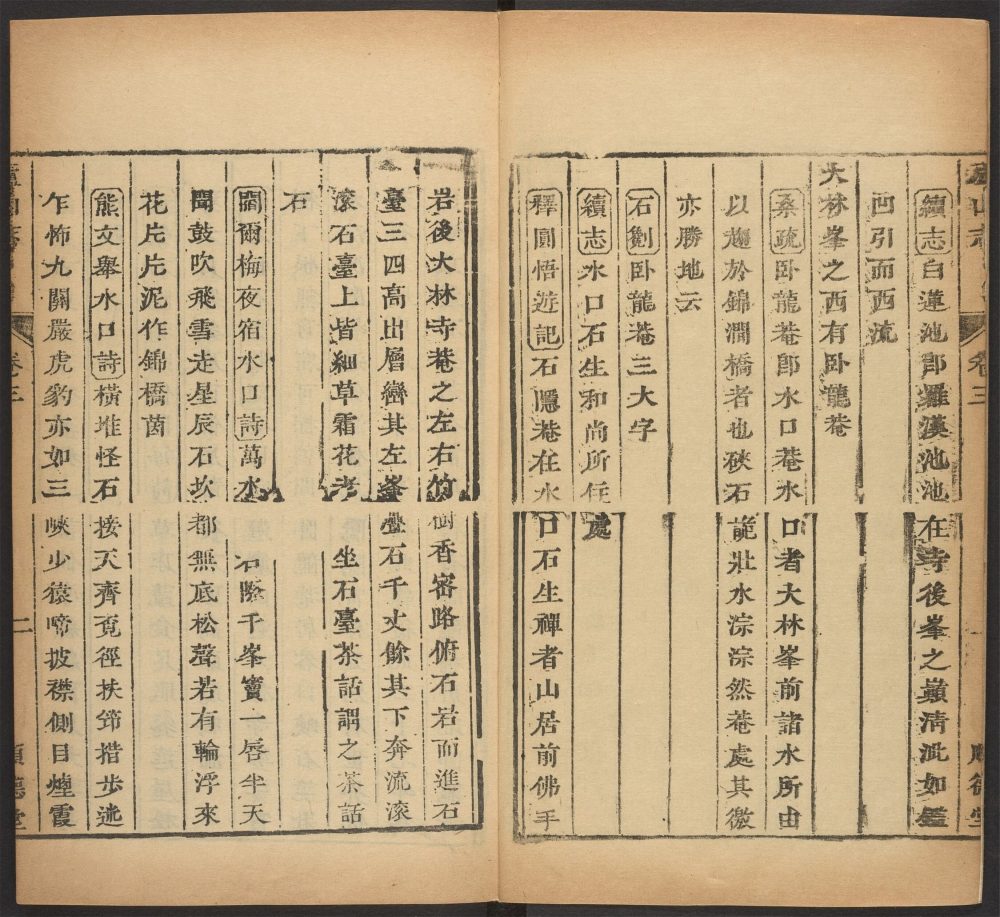 續志白蓮池卽羅漢池池在寺後峯之巔淸泚如鑑
凹引而西流
大林峯之西有卧龍菴
桑疏卧龍菴卽水口菴水口者大林峯前諸水所由
以趨於錦澗橋者也硤石詭壯水淙淙然菴處其微
亦勝地云
石劖卧龍菴三大字
續志水口石生和尚所住處
釋圓悟遊記石隱菴在水口石生禪者山居前佛手
岩後大林寺菴之左右竹樹香密路俯石若而進石
臺三四高出層巒其左峯疊石千丈餘其下奔流滚
滚石臺上皆細草霜花考坐石臺茶話謂之茶話
石
閻爾梅夜宿水口詩萬水石陰千峯竇一唇半天
聞鼓吹飛雪走星辰石坎都無底松聲若有輪浮來
花片片泥作錦橋茵
熊文舉水口詩橫堆怪石接天齊覔徑扶笻措步迷
乍怖九關嚴虎豹亦如三峽少猿啼披襟側目煙霞
卷三
二
順德堂